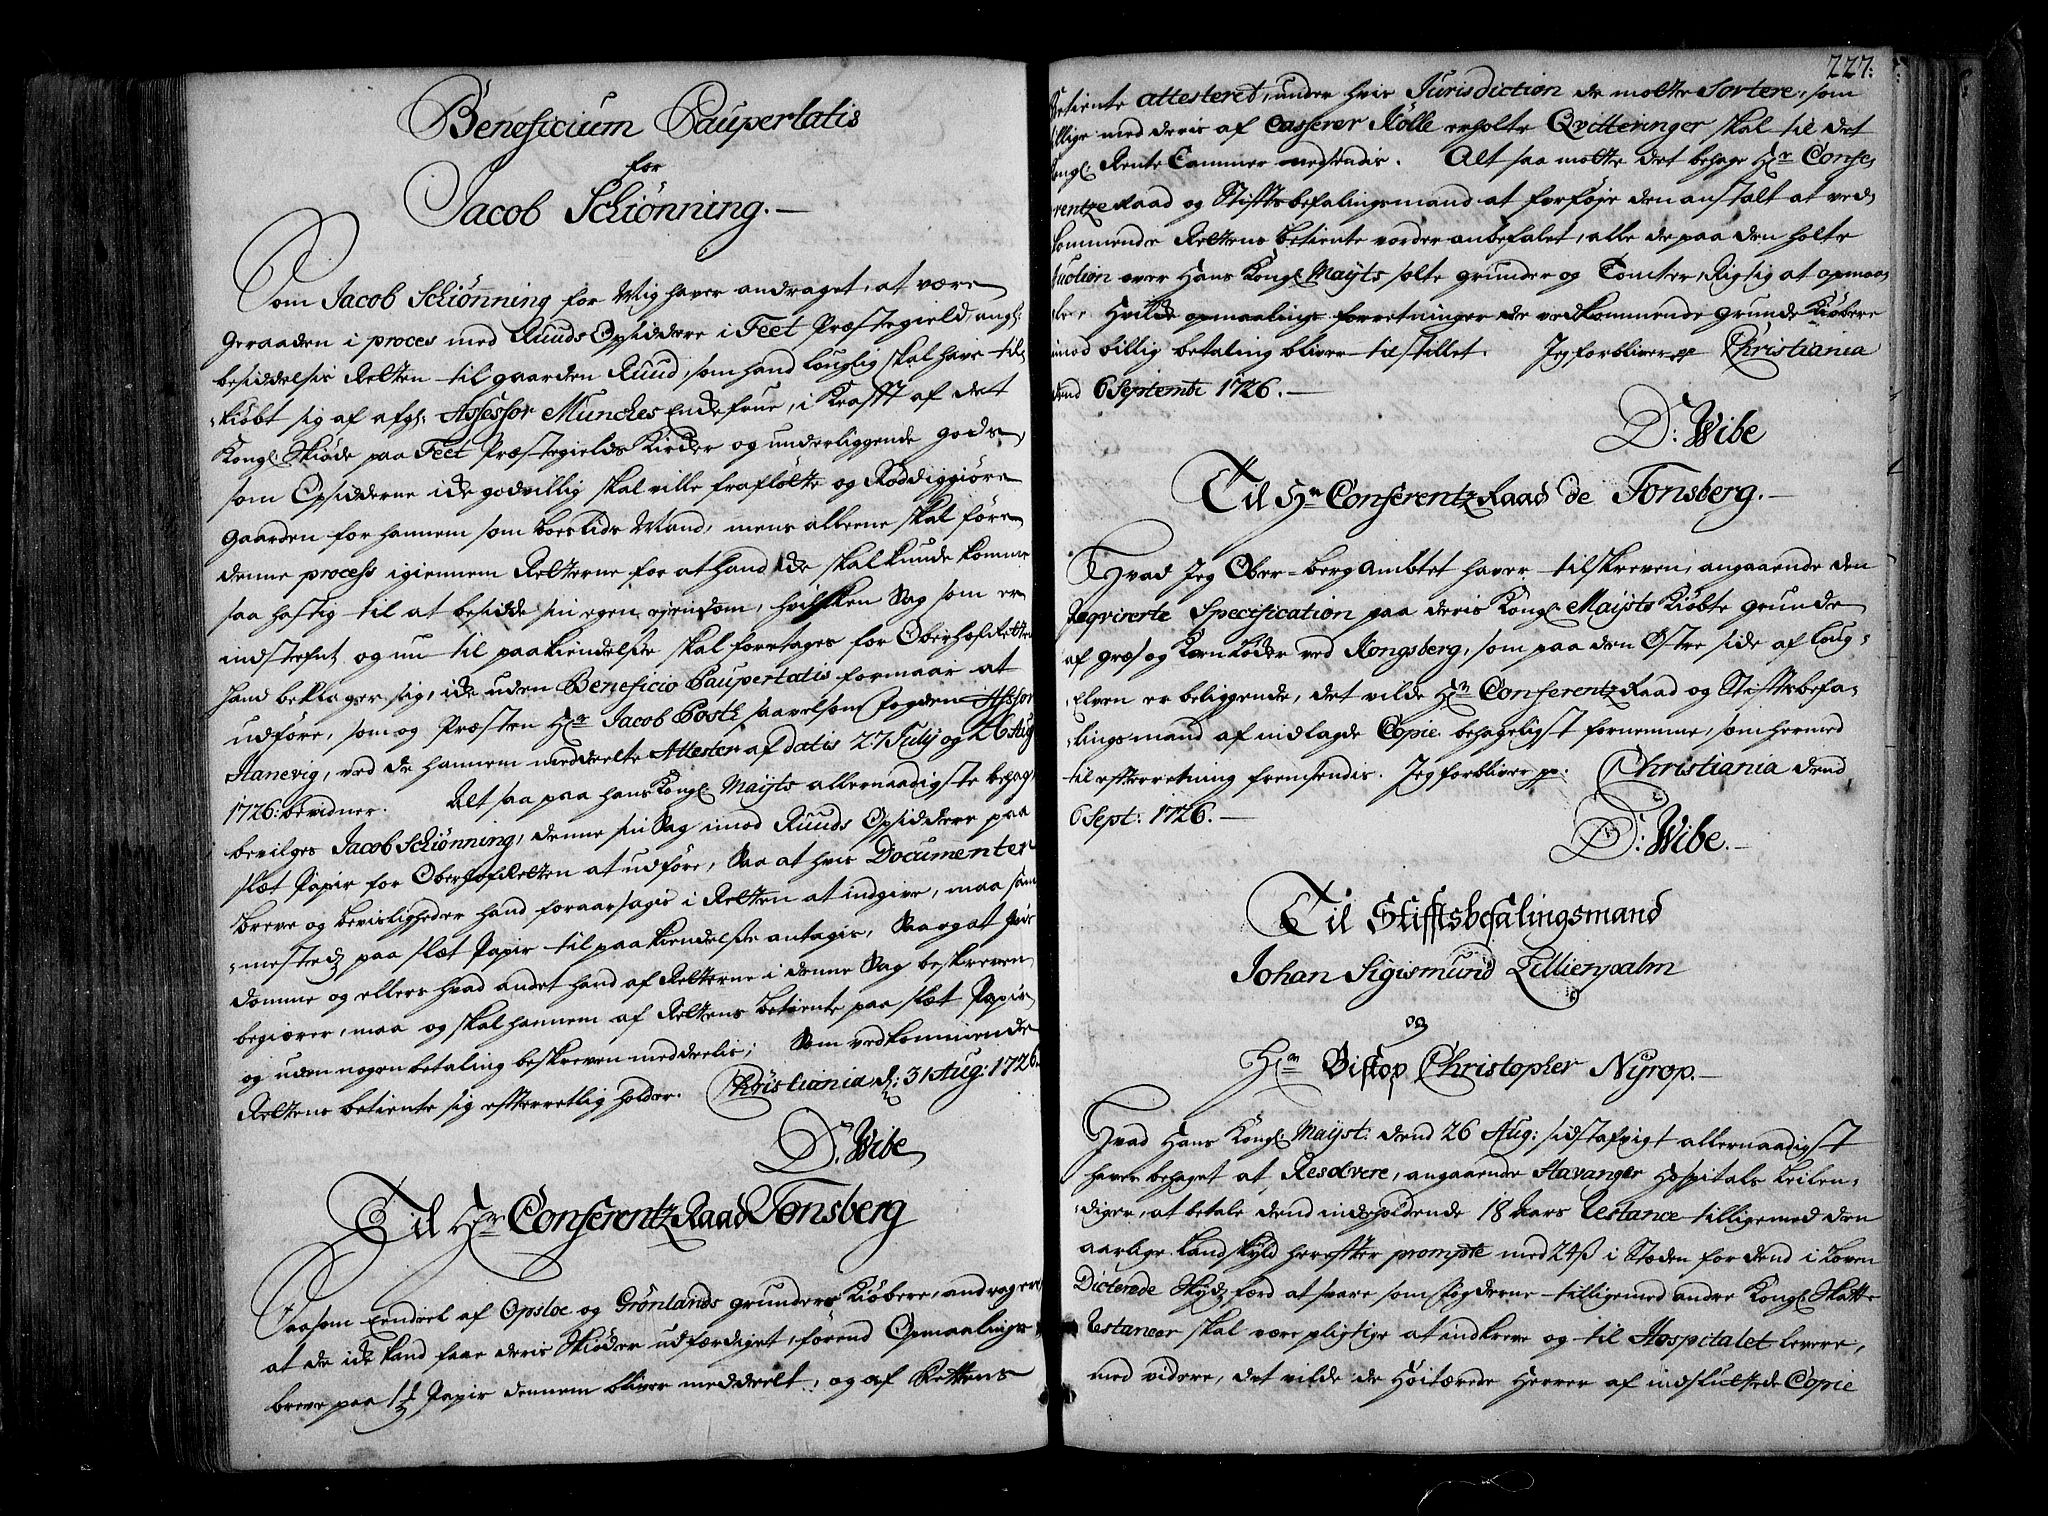 Beneficium Paupertatis
for
Jacob Schiønning.
Som Jacob Schiønning for Mig haver andraget, at være
geraaden i proces med Ruuds Opsiddere i Feet Præstegield, ang:
besiddelsis Retten til gaarden Ruud, som hand louglig skal have til
kiøbt sig af afg: Assessor Munches Enckefrue, i Krafft af det
Kongl. Skiøde paa Feet Præstegields Kircker og underliggende gods,
som Opsidderne icke godvillig skal ville fraflötte og Röddiggiöre
gaarden for hannem som boeslids Mand, mens alleene skal före
denne process igiennem Retterne for at hand icke skal kunde komme
saa hastig til at besidde sin egen ejendom, hvilken Sag som er
indstefnt og nu til paakiendelsse skal foretages for OberhofRetten
hand beklager sig, icke uden Beneficio Paupertatis formaar at
udföre, som og Præsten Hr Jacob Postz saavelsom fogden Assessor
Stanevig, ved de hannem meddeelte Attester af datis 27 Julij og 26 Aug
1726: bevidner. Alt saa paa hans Kongl. Mayts allernaadigste behag
bevilges Jacob Schiønning, denne sin Sag imod Ruuds Opsiddere paa
slæt Papir for OberhofRetten at udföre, Saa at hvis Documenter
breve og bevisligheder hand foraarsagis i Retten at indgive, maa sam
mesteds paa slæt Papir til paakiendelsse antagis, Saa og at hvis
domme og ellers hvad andet hand af Retterne i denne Sag beskreven
begiører, maa og skal hannem af Rettens betiente paa slæt Papir
og uden nogen betaling beskreven meddeelis; Som vedkommende
Rettens betiente sig efterretlig holder. Christiania d: 31 Aug: 1726
D. Wibe
Til Hr ConferentzRaad Tonsberg
Saasom Eendeel af Opsloe og Grönlands grunders Kiøbere, andrager
at de icke kand faae deris Skiøder udfærdiget, förend Opmaalings
breve paa 1½ Papir dennem bliver meddeelt, og af Rettens
227:
betiente attesteret, under hvis Jurisdiction de motte Sortere, som
tillige med deris af Casserer Rölle erholte Qvitteringer skal til det
Kongl. Rente Cammer nedsendis. Alt saa motte det behage Hr Confe
rentzeRaad og Stiftsbefalingsmand at forföje den anstalt at ved
kommende Rettens betiente vorder anbefalet, alle de paa den holte
Auction over Hans Kongl. Mayts solte grunder og Tomter, Rigtig at opmaa
le. Hvilcke opmaalings forretninger de vedkommende grunde Kiøbere
imod billig betaling bliver tilstillet. Jeg forbliver p. Christiania
dend 6 Septembr 1726.
D: Wibe
Til Hr ConferentzRaad de Tonsberg.
Hvad Jeg Ober-berg Ambtet haver tilskreven, angaaende den
Reqvirerte Specification paa deris Kongl. Maysts Kiøbte grunde
af græs og Korn Löcker ved Kongsberg, som paa den Østre side af Loug-
Elven er beliggende, det vilde Hr ConferentzRaad og Stiftsbefa-
lingsmand af indlagde Copie behageligst fornemme, som hermed
til effterretning fremsendis. Jeg forbliver p. Christiania dend
6 Sept: 1726.
D: Wibe.
Til Stifftsbefalingsmand
Johan Sigismund Lillienpalm
og
Hr Biskop Christopher Nyrop.
Hvad Hans Kongl. Mayst: dend 26 Aug: sidstafvigt allernaadigst
haver behaget at Resolvere, angaaende Stavanger Hospitals Leilen-
dinger, at betale dend indeholdende 18 Aars Restance tilligemed den
aarlige Landskyld hereffter prompte med 24 ß i Steden for dend i Loven
Dicterede förd at svare som fogderne tilligemed andre Kongl. Skatte
Restancer skal være pligtige at indkreve og til Hospitalet levere,
med videre, det vilde de Höitærede Herrer af indsluttede Copie